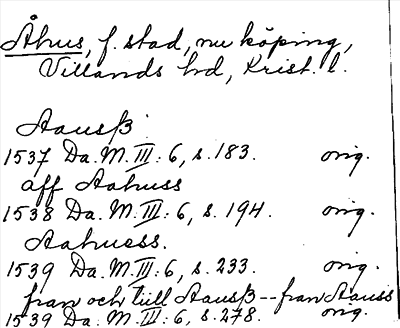 Åhus, f. stad, nu köping,
Villands hd, Krist. l.
Aausß
1537 Da. M. III: 6, s. 183. orig.
aff Aahuss
1538 Da. M. III: 6, s. 194. orig.
Aahuess.
1539 Da. M. III: 6, s. 233. orig.
fran och tiill Aausß -- fran Aauss
1539 Da. M. III: 6, s. 278. orig.